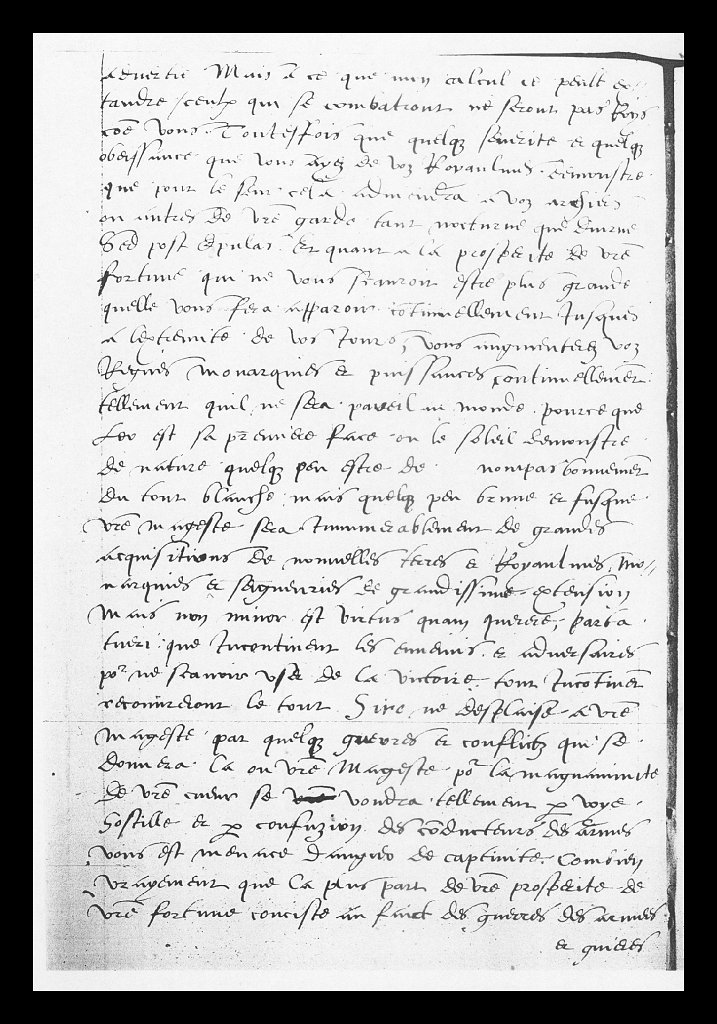 advertie Mais à ce que mon calcul se peult es-
tandre, ceulx qui se combatront ne seront pas Roys
cõe vous. Toutesfois que quelq; severite et quelq;
obeissance que vous ayez de voz Royaulmes demonstre
que pour le seur cela adviendra a voz archiers
ou autres de vr̃e garde tant nocturne que diurne
Sed post epulas. Et quant a la prosperite de vr̃e
fortune qui ne vous scauroit estre plus grande
quelle vous sera apparoir cõtinuellement Jusques
a lextremite de vos Jours, vous augmenterez voz
Regnes monarquies et puissances continuellement
tellement quil ne sera pareil au monde pource que
Leo est sa premiere face ou le soleil demonstre
de nature quelq; peu estre de nompas bonnement
du tout blanche mais quelq; peu brune et fusque
vr̃e mageste sera Innumerablement de grandes
acquisitions de nouvelles terres et Royaulmes, mo-
narquies et seigneuries de grandissime extension
Mais non minor est virtus quam querere, parta
tueri que Incontinent les ennemis et adversaires
por ne scavoir user de la victoire, tout Incõtinẽt
recouvreront le tout. Sire ne desplaise a vr̃e
mageste par quelq; guerres et conflictz qui se
donnera la ou vr̃e Mageste por la magnanimite
de vr̃e cueur se vouldra tellement p voye
hostille et p confuzion des cõducteurs des armes
vous est menace danger de captivite. Combien
vrayement que la plus part de vr̃e prosperite de
vr̃e fortune conciste au faict des guerres des armes
et guieres